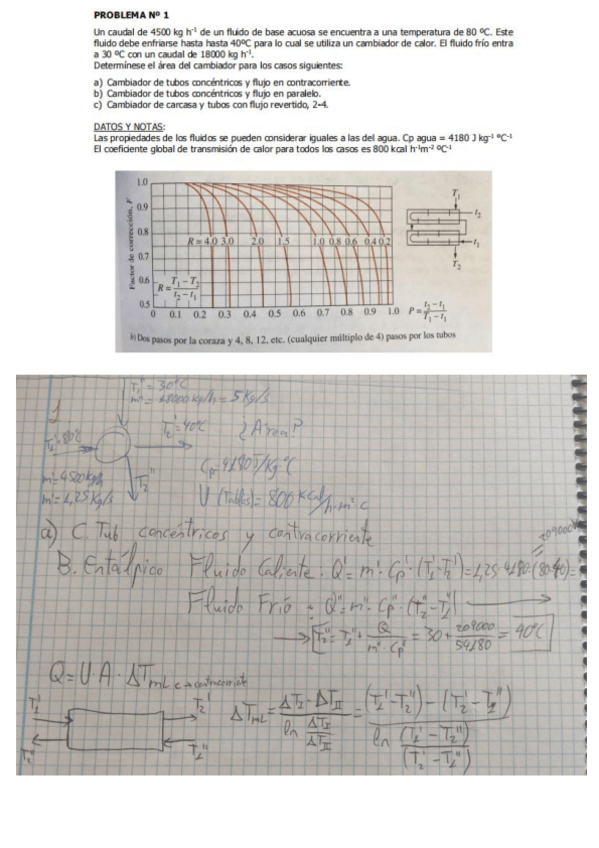 PROBLEMA Nº 1
Un caudal de 4500 kg h⁻¹ de un fluido de base acuosa se encuentra a una temperatura de 80 ºC. Este
fluido debe enfriarse hasta hasta 40ºC para lo cual se utiliza un cambiador de calor. El fluido frío entra
a 30 ºC con un caudal de 18000 kg h⁻¹.
Determínese el área del cambiador para los casos siguientes:
a) Cambiador de tubos concéntricos y flujo en contracorriente.
b) Cambiador de tubos concéntricos y flujo en paralelo.
c) Cambiador de carcasa y tubos con flujo revertido, 2-4.
DATOS Y NOTAS:
Las propiedades de los fluidos se pueden considerar iguales a las del agua. Cp agua = 4180 J kg⁻¹ ºC⁻¹
El coeficiente global de transmisión de calor para todos los casos es 800 kcal h⁻¹m⁻² ºC⁻¹
Factor de corrección, F
1.0
0.9
0.8
0.7
0.6
0.5
R = 4.0 3.0 2.0 1.5 1.0 0.8 0.6 0.4 0.2
R = (T₁ – T₂) / (t₂ – t₁)
0 0.1 0.2 0.3 0.4 0.5 0.6 0.7 0.8 0.9 1.0 P = (t₂ – t₁) / (T₁ – t₁)
T₁
t₂
t₁
T₂
b) Dos pasos por la coraza y 4, 8, 12, etc. (cualquier múltiplo de 4) pasos por los tubos
1
T₁'' = 30ºC
m'' = 18000 kg/h = 5 Kg/s
T₁' = 80ºC
T₂' = 40ºC
¿Area?
m' = 4500 kg/h
m' = 1,25 Kg/s
T₂''
Cp = 4180 J/Kg ºC
U (Tablas) = 800 Kcal/h·m²·C
a) C. Tub concéntricos y contracorriente
B. Entálpico Fluido Caliente: Q' = m'·Cp'·(T₁'-T₂') = 1,25·4180·(80-40) =
Fluido Frío: Q'' = m''·Cp''·(T₂''-T₁'')
T₂'' = T₁'' + Q / (m''·Cp'') = 30 + 209000 / 5·4180 = 40ºC
Q = U·A·ΔTmL contracorriente
T₁' T₂'
T₂'' T₁''
ΔTmL = (ΔTI - ΔTII) / (ln ΔTI/ΔTII) = ((T₁'-T₂'') - (T₂'-T₁'')) / (ln (T₁'-T₂'')/(T₂'-T₁''))